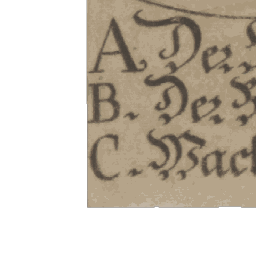 A. Der
B. Der
C. Wac